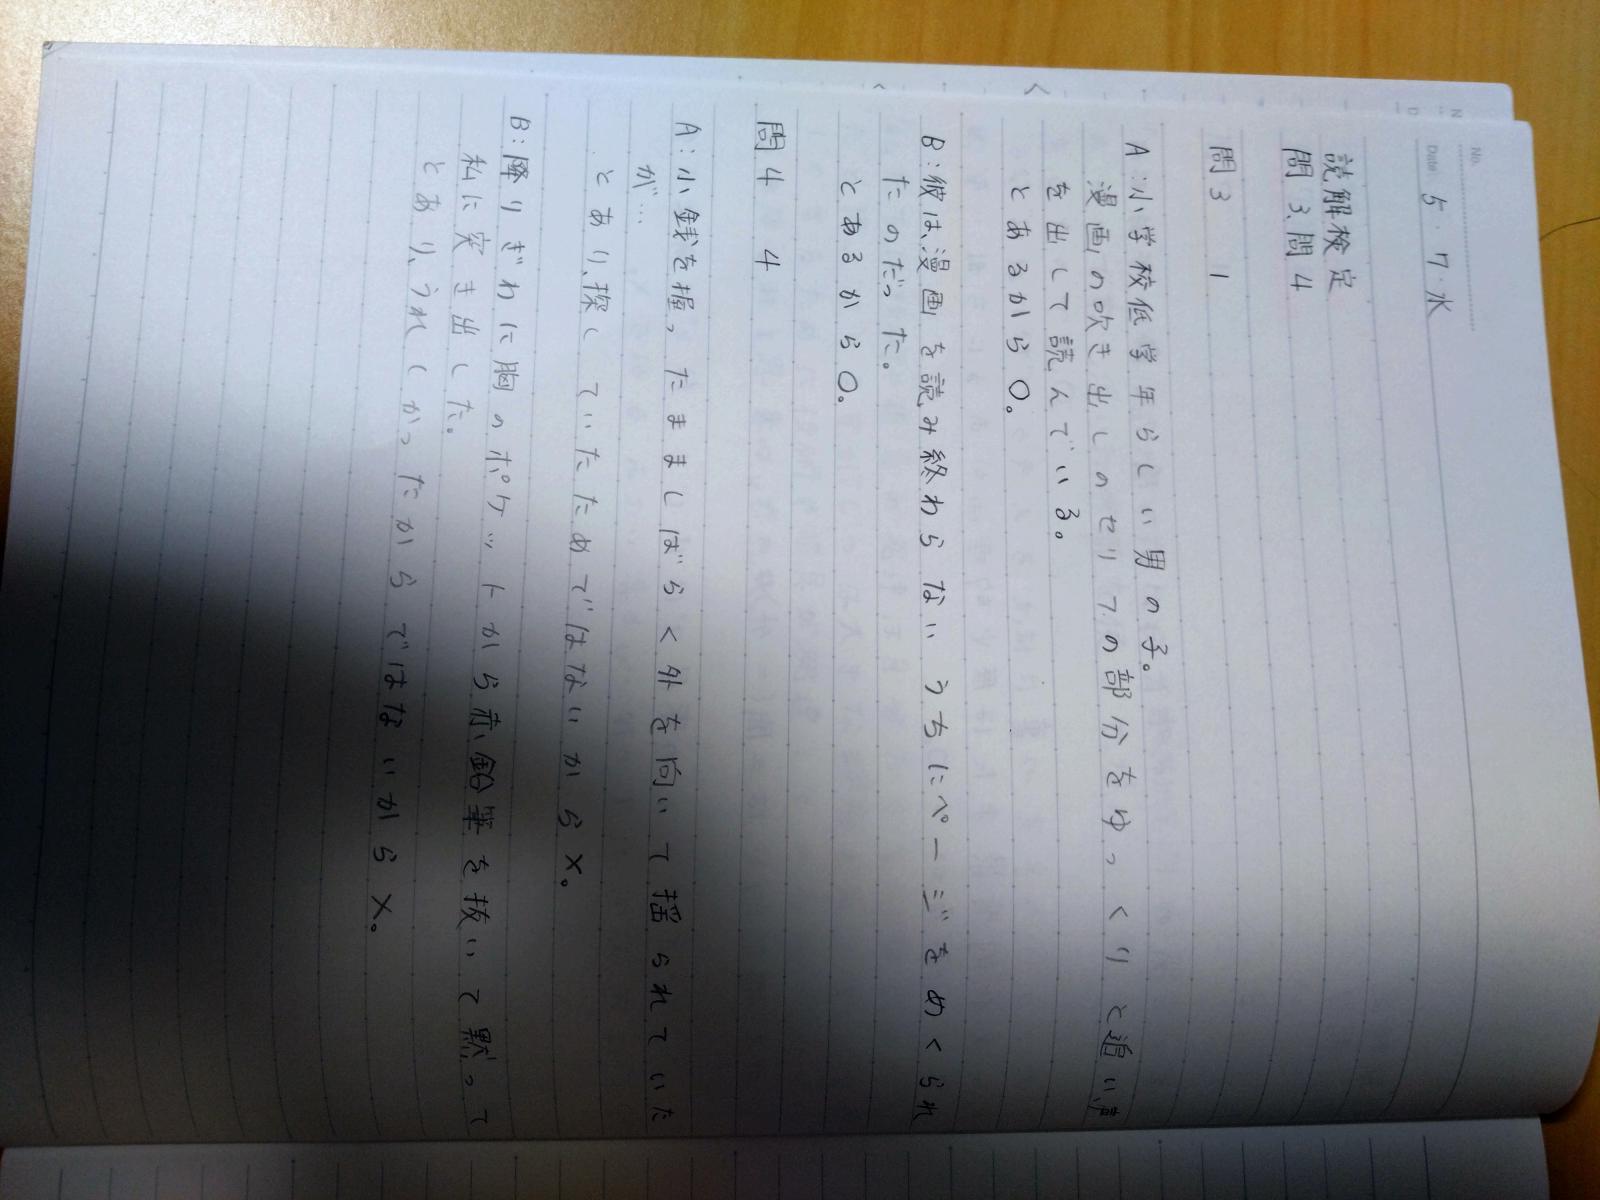 No.
Date 5・7・水
読解検定
問3、問4
問3 1
A:小学校低学年らしい男の子。
漫画の吹き出しのセリフの部分をゆっくりと追い声
を出して読んでいる。
とあるから○。
B:彼は、漫画を読み終わらないうちにページをめくられ
たのだった。
とあるから○。
問4 4
A:小銭を握ったまましばらく外を向いて揺られていた
が…
とあり、探していたためではないから×。
B:降りぎわに胸のポケットから赤鉛筆を抜いて黙って
私に突き出した。
とあり、うれしかったからではないから×。